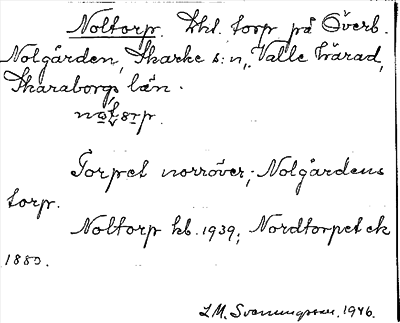 Noltorp. Lht. torp på Överb.
Nolgården, Skarke s:n, Valle härad,
Skaraborgs län.
Torpet norröver; Nolgårdens
torp.
Noltorp kb. 1939; Nordtorpet ek
1880.
L.M. Svenungsson, 1946.